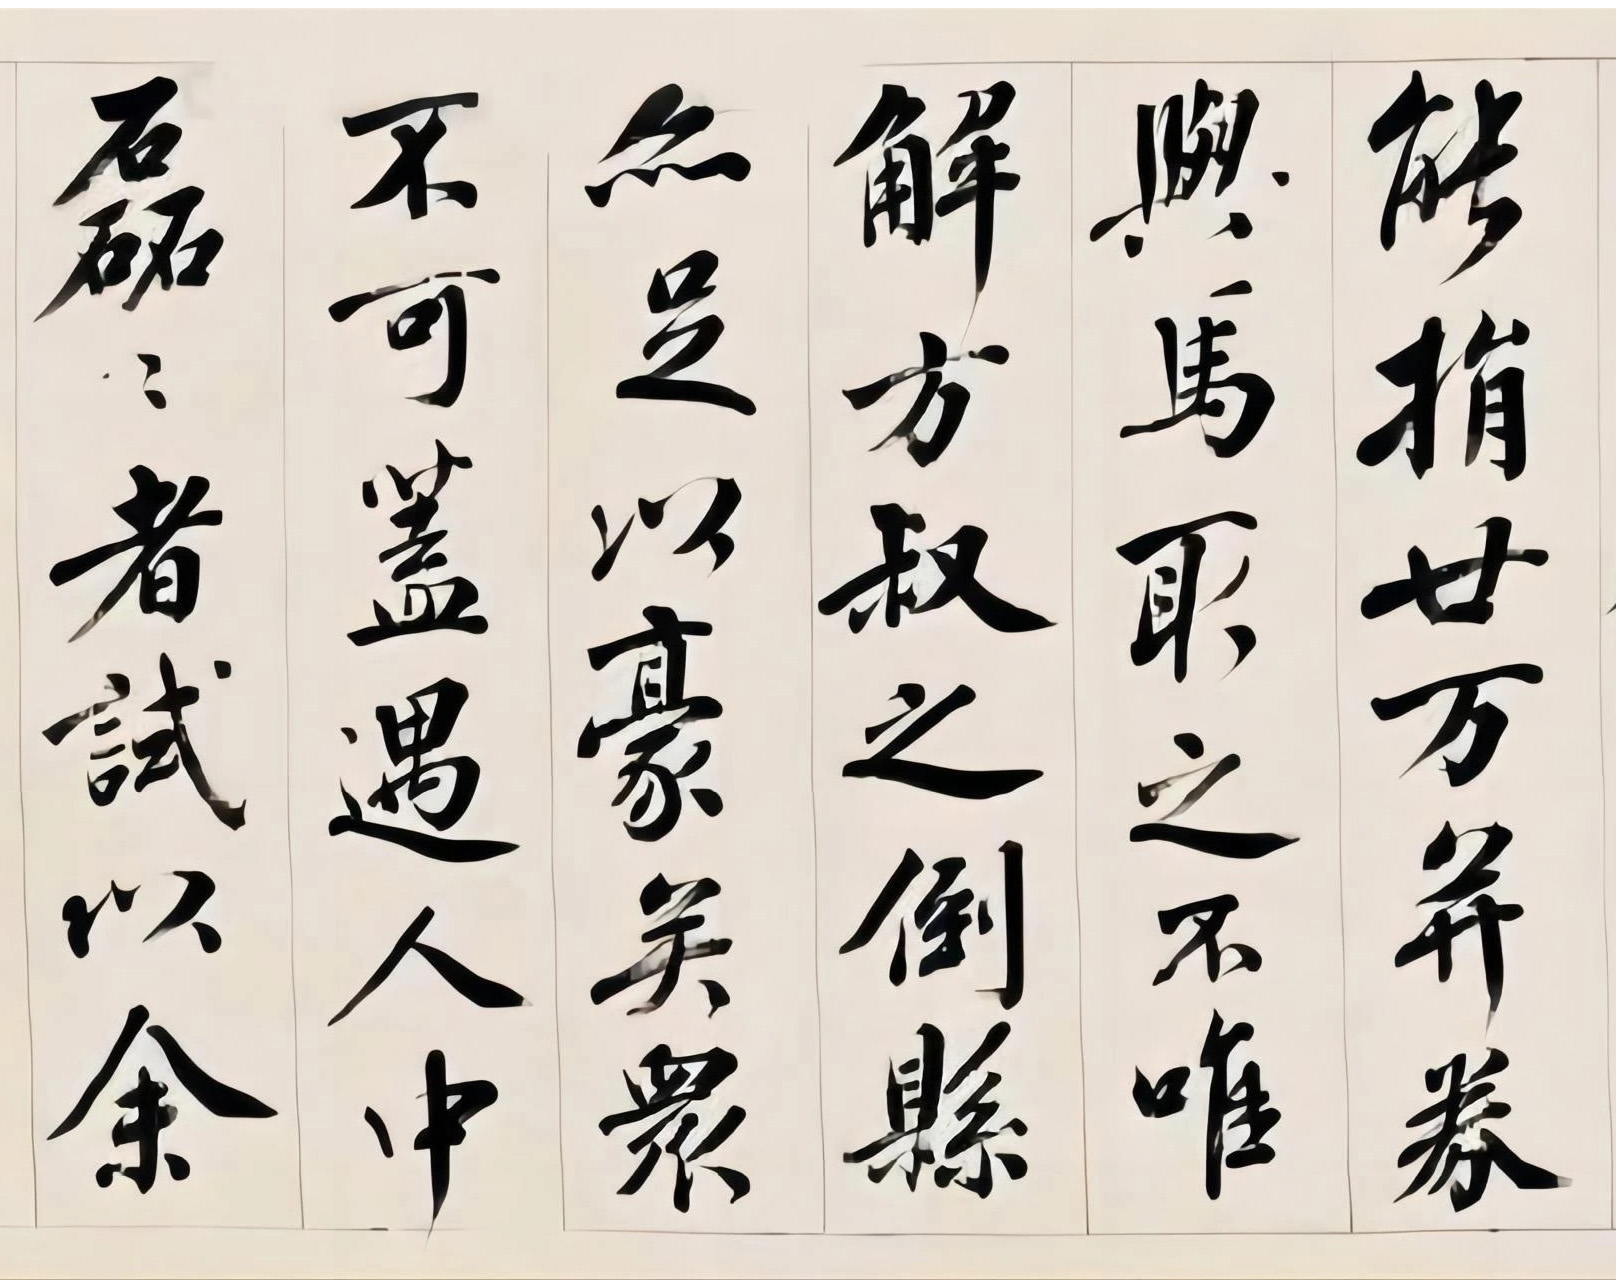 能捐廿万并券
與馬取之不唯
解方叔之倒縣
亦足以豪矣衆
不可蓋遇人中
磊〻者試以余